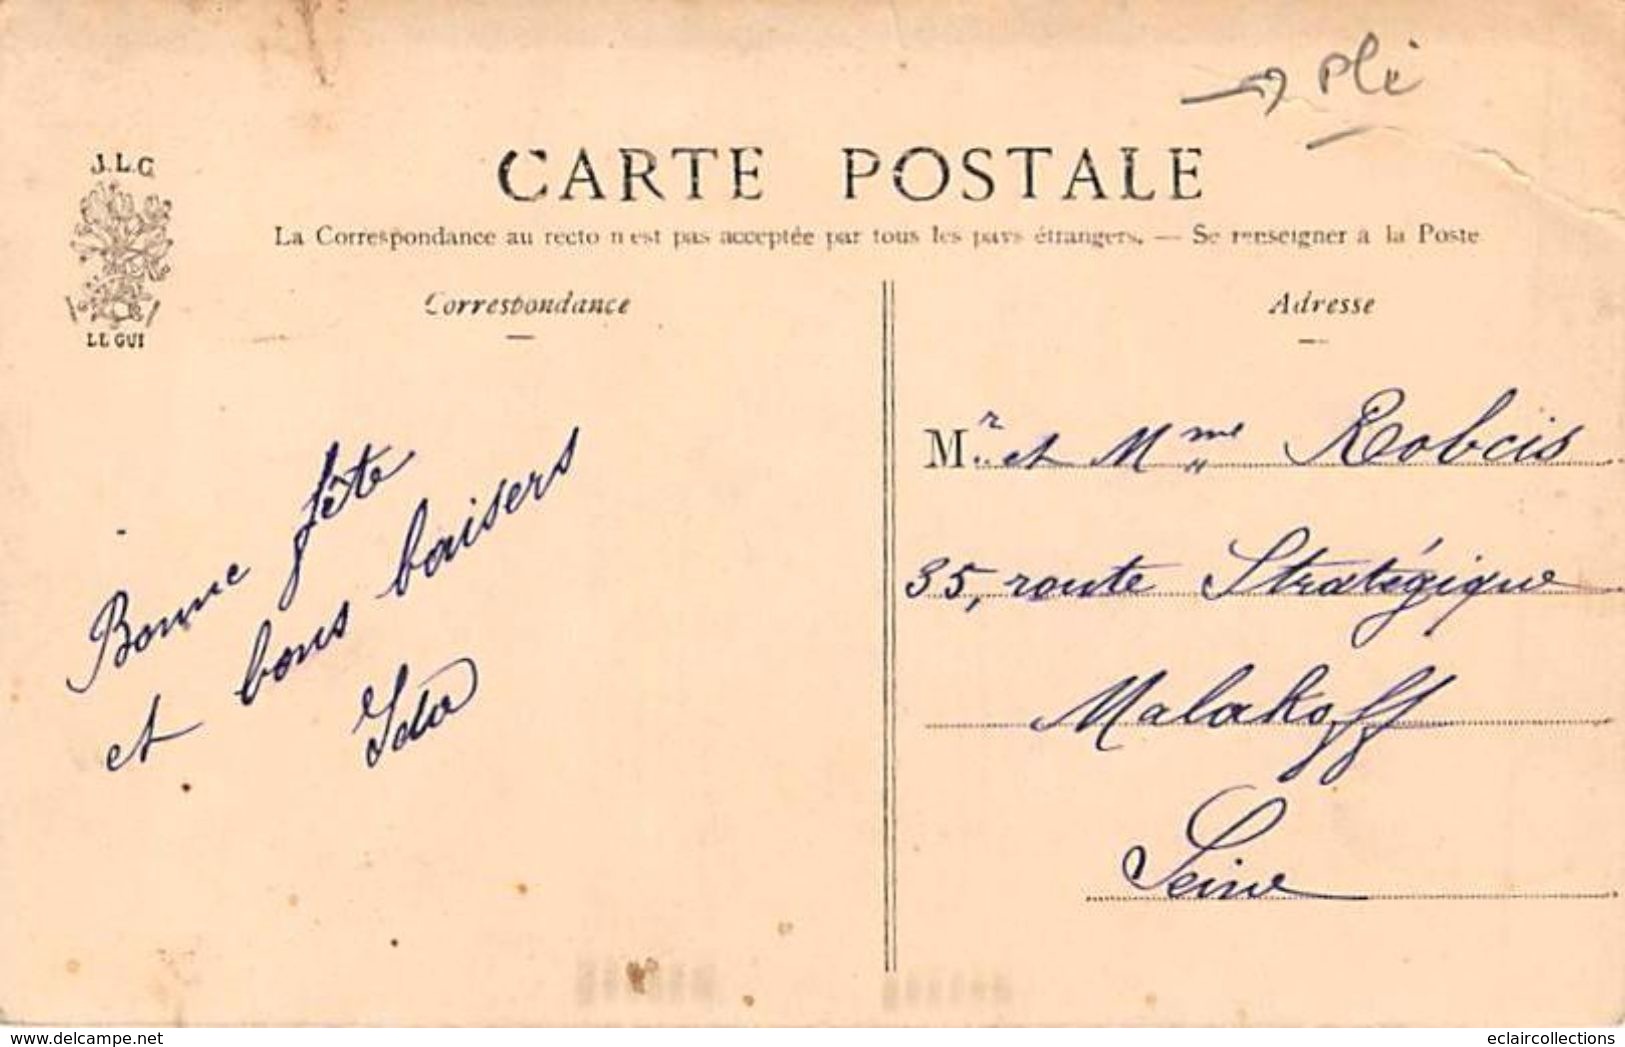 Plié
J.L.C
CARTE POSTALE
La Correspondance au recto n'est pas acceptée par tous les pays étrangers. — Se renseigner à la Poste
LE GUI
Correspondance
Adresse
Bonne fête
et bons baisers
Ida
Mr et Mme Robcis
35, route Stratégique
Malakoff
Seine
delcampe.net
eclaircollections